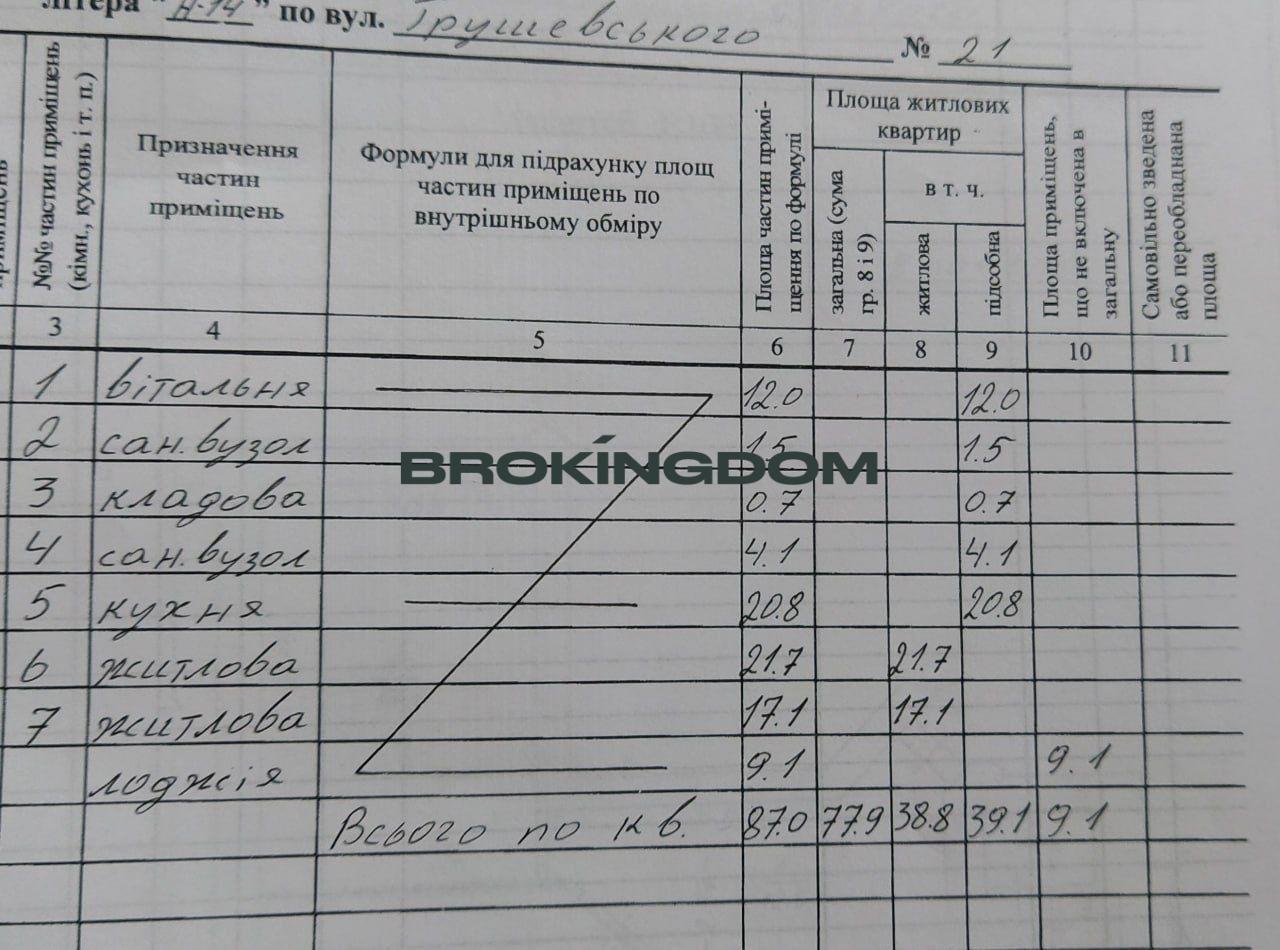 літера “А-14” по вул. Грушевського № 21
приміщень
№№ частин приміщень
(кімн., кухонь і т. п.)
Призначення
частин
приміщень
Формули для підрахунку площ
частин приміщень по
внутрішньому обміру
Площа частин примі-
щення по формулі
Площа житлових
квартир
загальна (сума
гр. 8 і 9)
в т. ч.
житлова
підсобна
Площа приміщень,
що не включена в
загальну
Самовільно зведена
або переобладнана
площа
3 4 5 6 7 8 9 10 11
1 вітальня 12.0 12.0
2 сан. вузол 1.5 1.5
BROKINGDOM
3 кладова 0.7 0.7
4 сан. вузол 4.1 4.1
5 кухня 20.8 20.8
6 житлова 21.7 21.7
7 житлова 17.1 17.1
лоджія 9.1 9.1
Всього по кв. 87.0 77.9 38.8 39.1 9.1